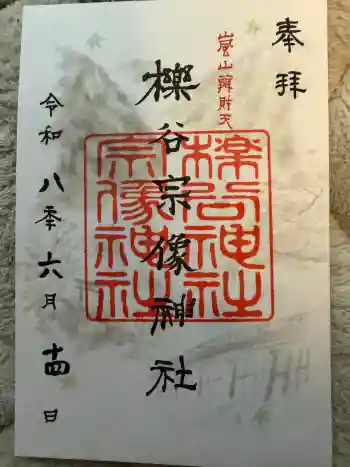 奉拝
嵐山辨財天
櫟谷宗像神社
櫟谷神社
宗像神社
令和八年六月十四日